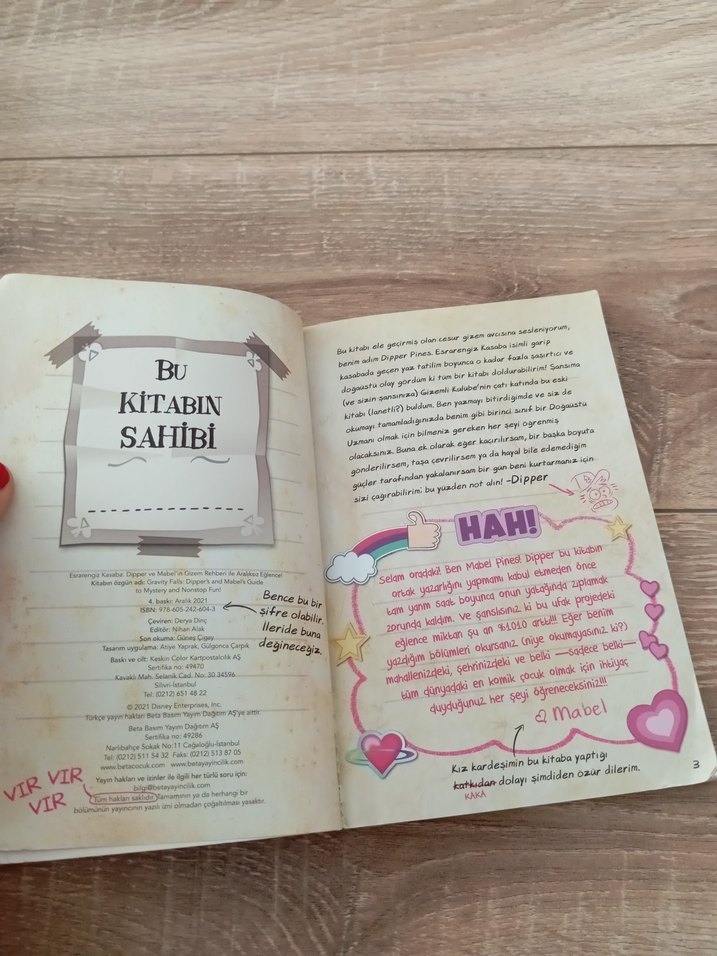 BU
KİTABIN
SAHİBİ
Esrarengiz Kasaba: Dipper ve Mabel'ın Gizem Rehberi ile Aralıksız Eğlence!
Kitabın özgün adı: Gravity Falls: Dipper's and Mabel's Guide
to Mystery and Nonstop Fun!
4. baskı: Aralık 2021
ISBN: 978-605-242-604-3
Bence bu bir
şifre olabilir.
İleride buna
değineceğiz.
Çeviren: Derya Dinç
Editör: Nihan Alak
Son okuma: Güneş Çıgay
Tasarım uygulama: Atiye Yaprak, Gülgonca Çarpık
Baskı ve cilt: Keskin Color Kartpostalcılık AŞ
Sertifika no: 49470
Kavaklı Mah. Selanik Cad. No: 30 34596
Silivri-İstanbul
Tel: (0212) 651 48 22
© 2021 Disney Enterprises, Inc.
Türkçe yayın hakları Beta Basım Yayım Dağıtım AŞ'ye aittir.
Beta Basım Yayım Dağıtım AŞ
Sertifika no: 49286
Narlıbahçe Sokak No:11 Cağaloğlu-İstanbul
Tel: (0212) 511 54 32 Faks: (0212) 513 87 05
www.betacocuk.com www.betayayincilik.com
Yayın hakları ve izinler ile ilgili her türlü soru için:
bilgi@betayayincilik.com
Tüm hakları saklıdır. Tamamının ya da herhangi bir
bölümünün yayıncının yazılı izni olmadan çoğaltılması yasaktır.
VIR VIR
VIR
Bu kitabı ele geçirmiş olan cesur gizem avcısına sesleniyorum,
benim adım Dipper Pines. Esrarengiz Kasaba isimli garip
kasabada geçen yaz tatilim boyunca o kadar fazla şaşırtıcı ve
doğaüstü olay gördüm ki tüm bir kitabı doldurabilirim! Şansıma
(ve sizin şansınıza) Gizemli Kulübe'nin çatı katında bu eski
kitabı (lanetli?) buldum. Ben yazmayı bitirdiğimde ve siz de
okumayı tamamladığınızda benim gibi birinci sınıf bir Doğaüstü
Uzmanı olmak için bilmeniz gereken her şeyi öğrenmiş
olacaksınız. Buna ek olarak eğer kaçırılırsam, bir başka boyuta
gönderilirsem, taşa çevrilirsem ya da hayal bile edemediğim
güçler tarafından yakalanırsam bir gün beni kurtarmanız için
sizi çağırabilirim; bu yüzden not alın! -Dipper
HAH!
Selam oradaki! Ben Mabel Pines! Dipper bu kitabın
ortak yazarlığını yapmamı kabul etmeden önce
tam yarım saat boyunca onun yatağında zıplamak
zorunda kaldım. Ve şanslısınız ki bu ufak projedeki
eğlence miktarı şu an %1.010 arttı!!! Eğer benim
yazdığım bölümleri okursanız (niye okumayasınız ki?)
mahallenizdeki, şehrinizdeki ve belki —sadece belki—
tüm dünyadaki en komik çocuk olmak için ihtiyaç
duyduğunuz her şeyi öğreneceksiniz!!!
Mabel
Kız kardeşimin bu kitaba yaptığı
katkıdan dolayı şimdiden özür dilerim.
KAKA
3